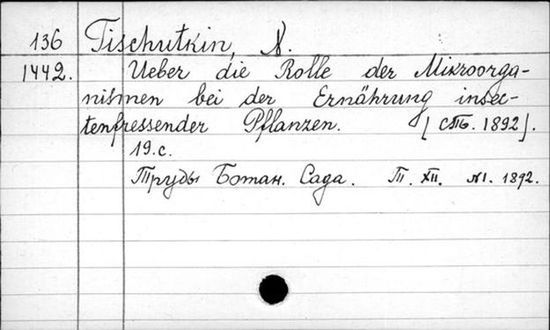 136 Tischutkin, N.
1442. Ueber die Rolle der Mikroorga-
nismen bei der Ernährung insec-
tenfressender Pflanzen. [СПб. 1892].
19.c.
Труды Ботан. Сада. Т. XII. №1. 1892.